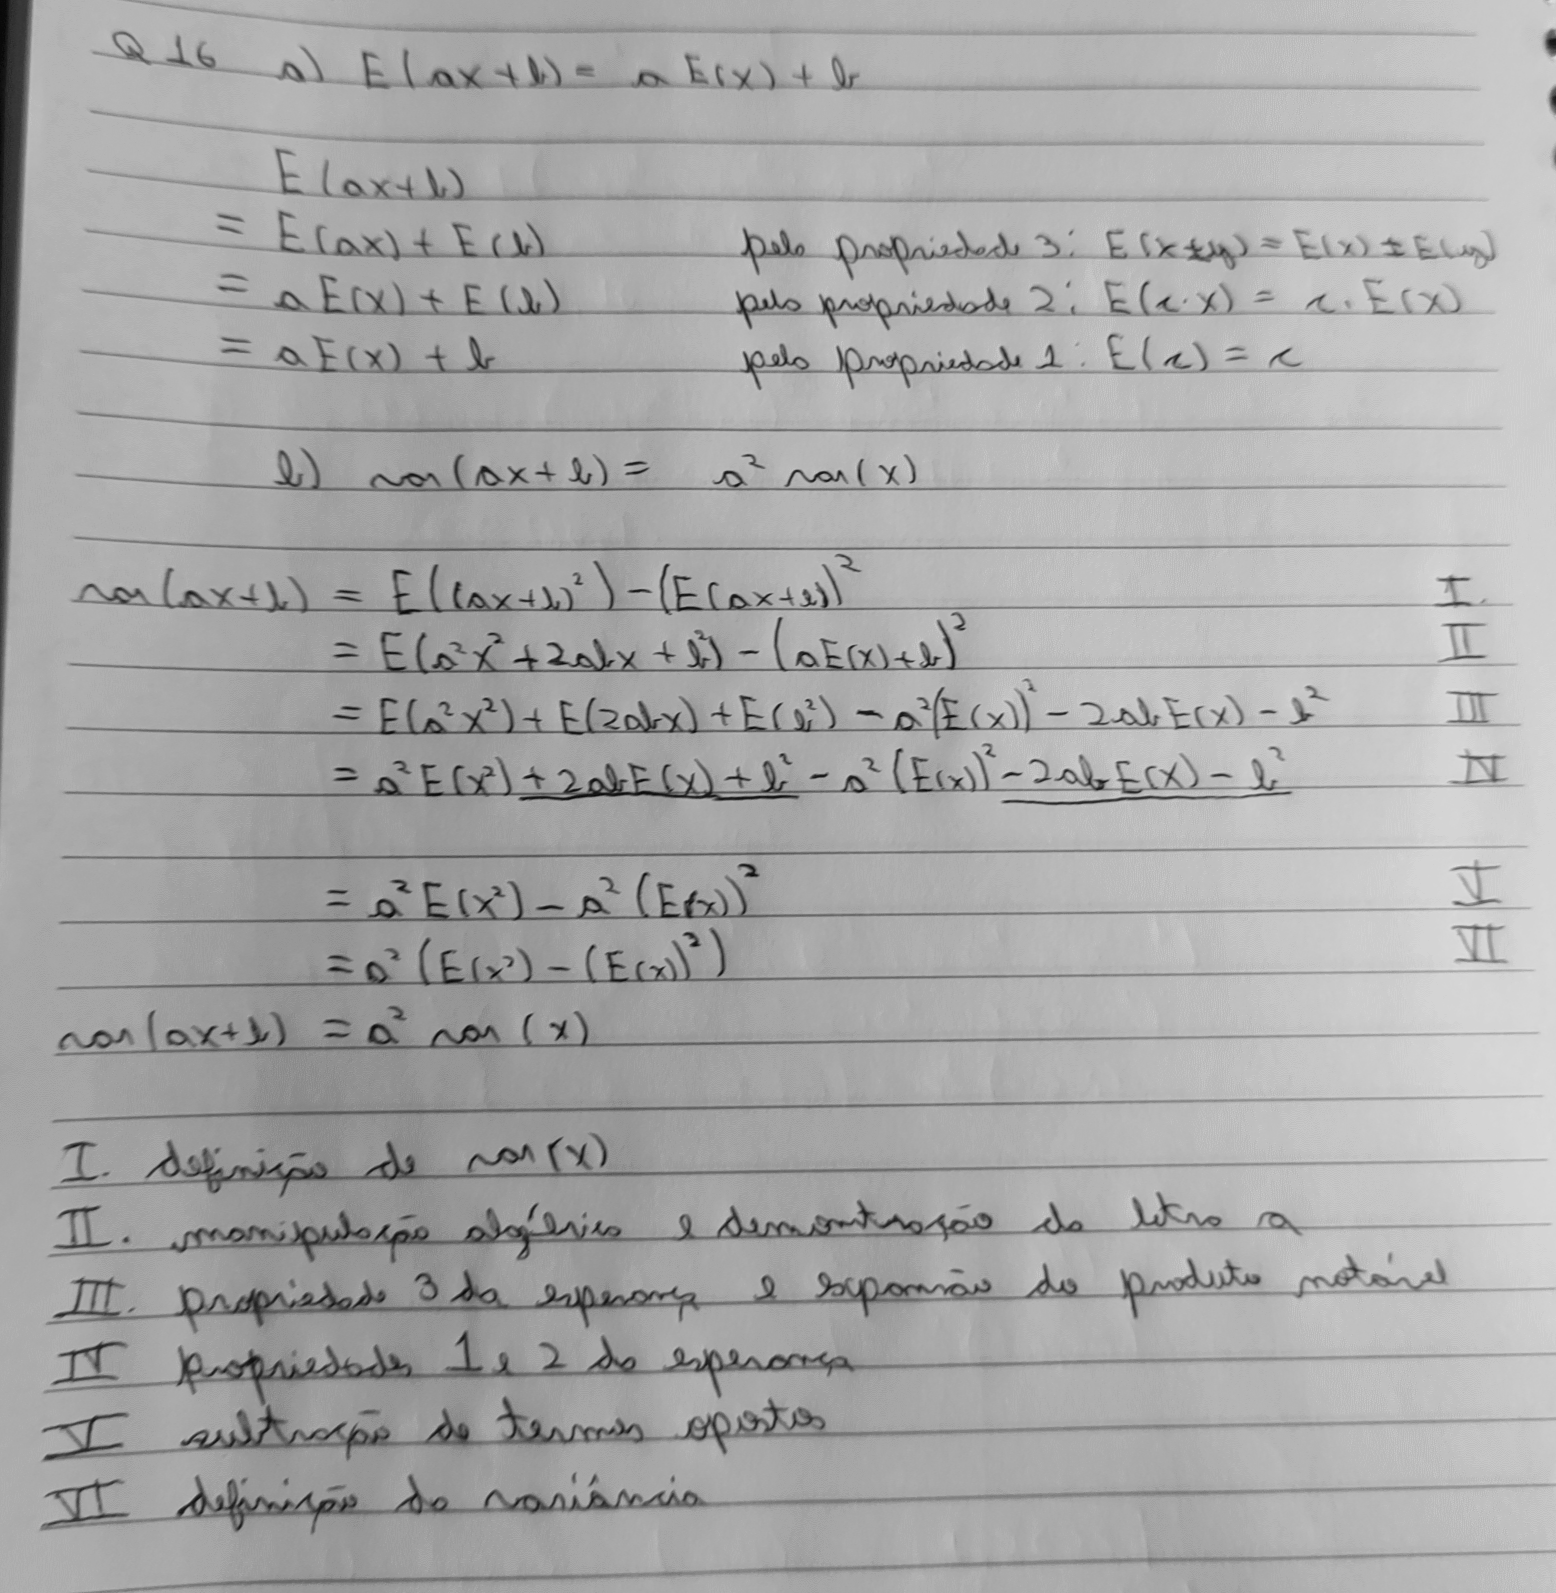 Q 16 a) E(ax+b) = a E(x) + b
E(ax+b)
= E(ax) + E(b) pela propriedade 3: E(x±y) = E(x) ± E(y)
= aE(x) + E(b) pela propriedade 2: E(c·x) = c. E(x)
= aE(x) + b pela propriedade 1: E(c) = c
b) var(ax+b) = a² var(x)
var(ax+b) = E((ax+b)²) - (E(ax+b))² I.
= E(a²x² + 2abx + b²) - (aE(x)+b)² II
= E(a²x²) + E(2abx) + E(b²) - a²(E(x))² - 2abE(x) - b² III
= a²E(x²) + 2abE(x) + b² - a²(E(x))² - 2abE(x) - b² IV
= a²E(x²) - a²(E(x))² V
= a²(E(x²) - (E(x))²) VI
var(ax+b) = a² var(x)
I. definição de var(x)
II. manipulação algébrica e demontração da letra a
III. propriedade 3 da esperança e expansão do produto notável
IV propriedades 1 e 2 da esperança
V subtração de termos opostos
VI definição da variância